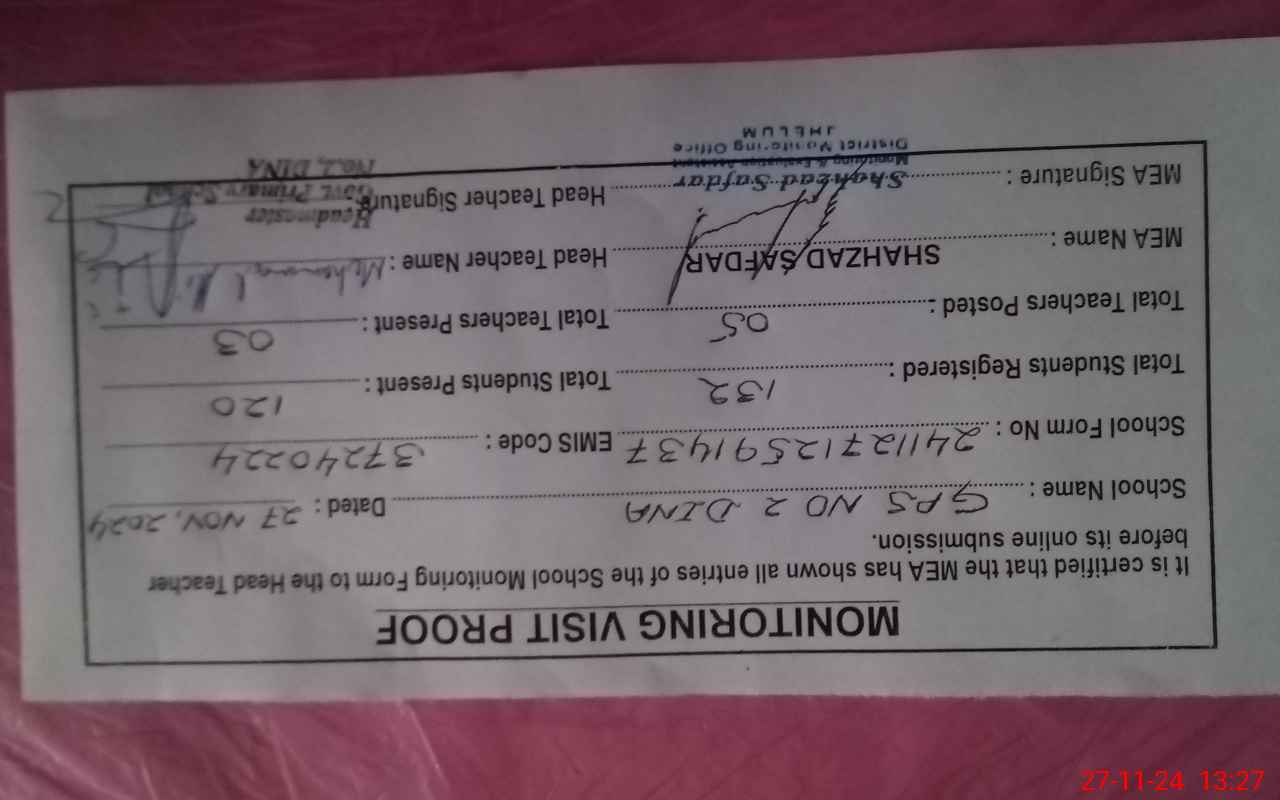 MONITORING VISIT PROOF
It is certified that the MEA has shown all entries of the School Monitoring Form to the Head Teacher
before its online submission.
School Name : GPS NO 2 DINA Dated : 27 NOV, 2024
School Form No : 24112712591437 EMIS Code : 37240224
Total Students Registered : 132 Total Students Present : 120
Total Teachers Posted : 05 Total Teachers Present : 03
MEA Name : SHAHZAD SAFDAR Head Teacher Name : Mohammad
MEA Signature : Head Teacher Signature
Shahzad Safdar
Monitoring & Evaluation Assistant
District Monitoring Office
JHELUM
Headmaster
Govt. Primary School
No.2, DINA
27-11-24 13:27